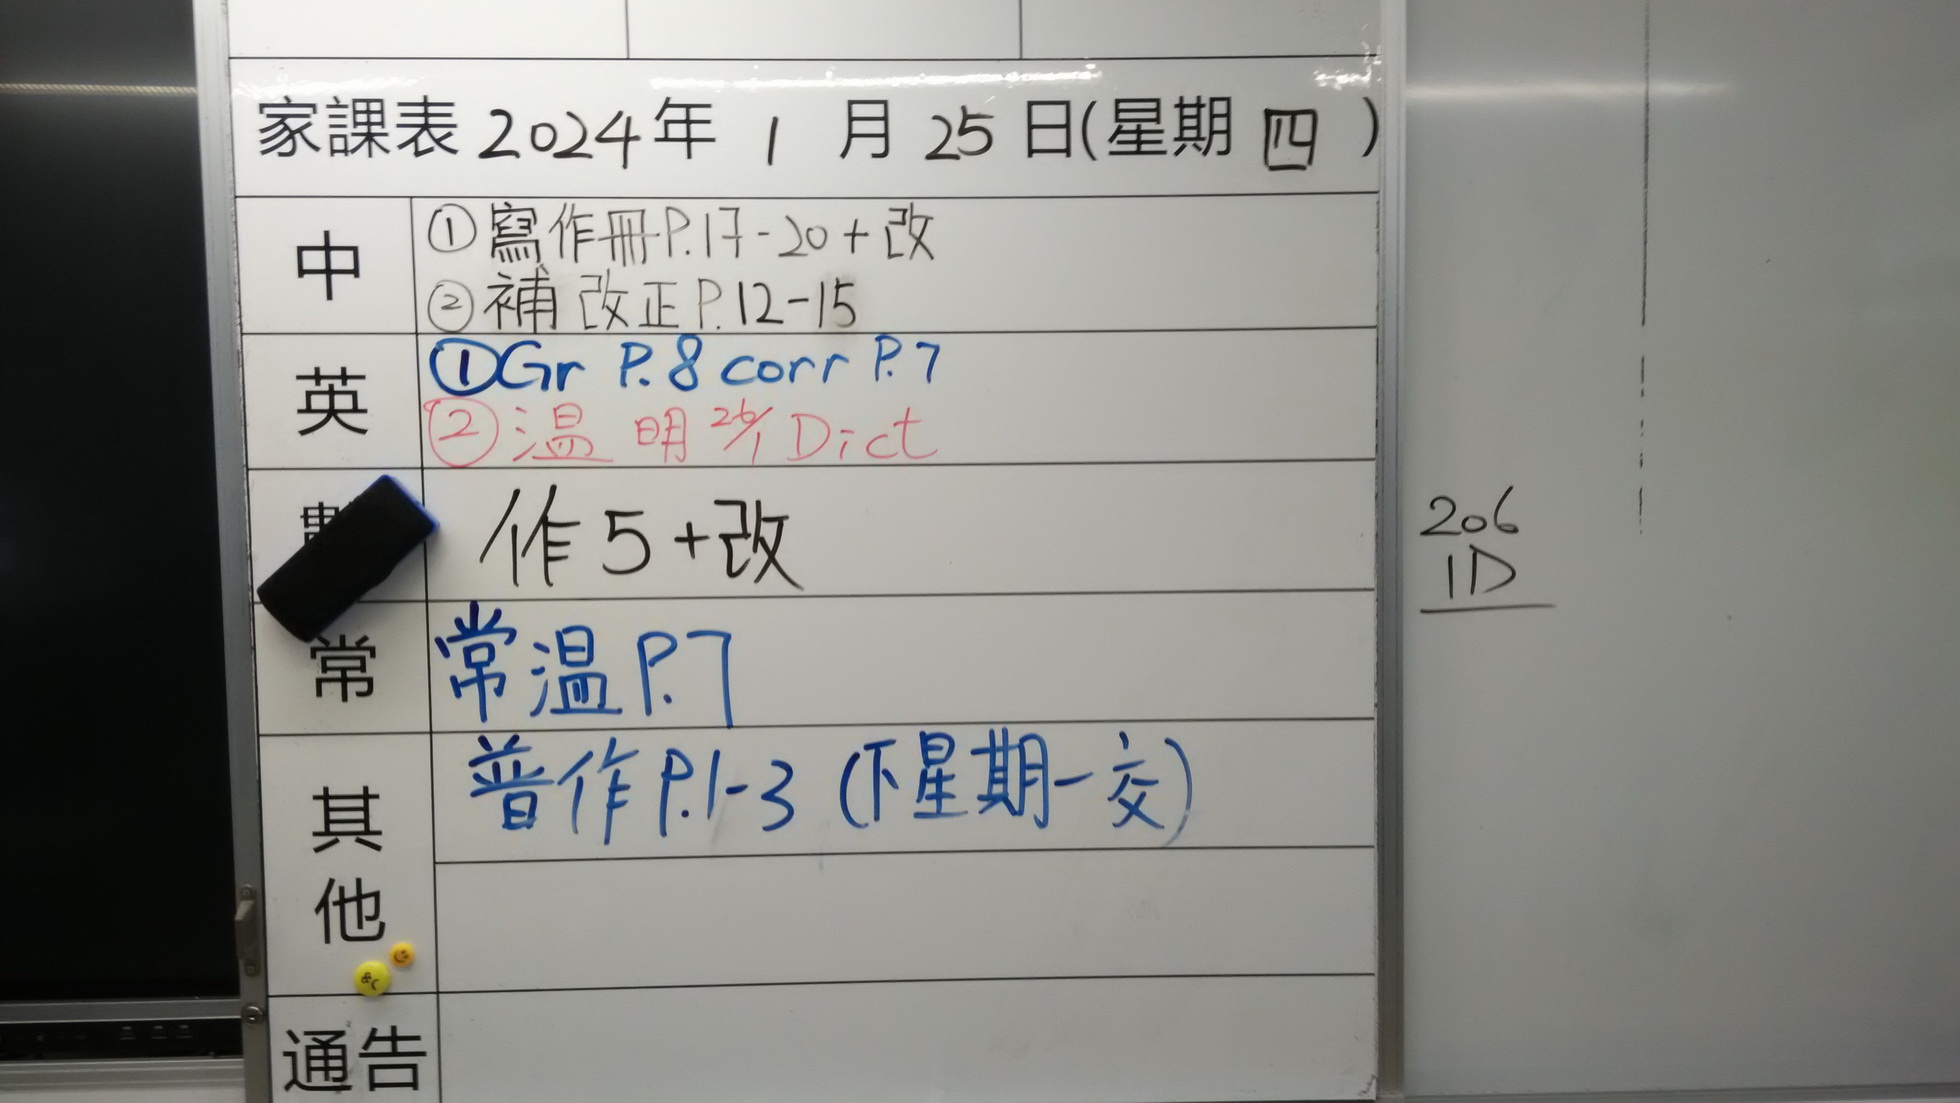 家課表 2024年 1 月 25 日(星期 四 )
中
①寫作冊P.17-20+改
②補改正P.12-15
英
①Gr P.8 corr P.7
②温 明26/1 Dict
作5+改
常
常温P.7
其他
普作P.1-3 (下星期一交)
通告
206
1D